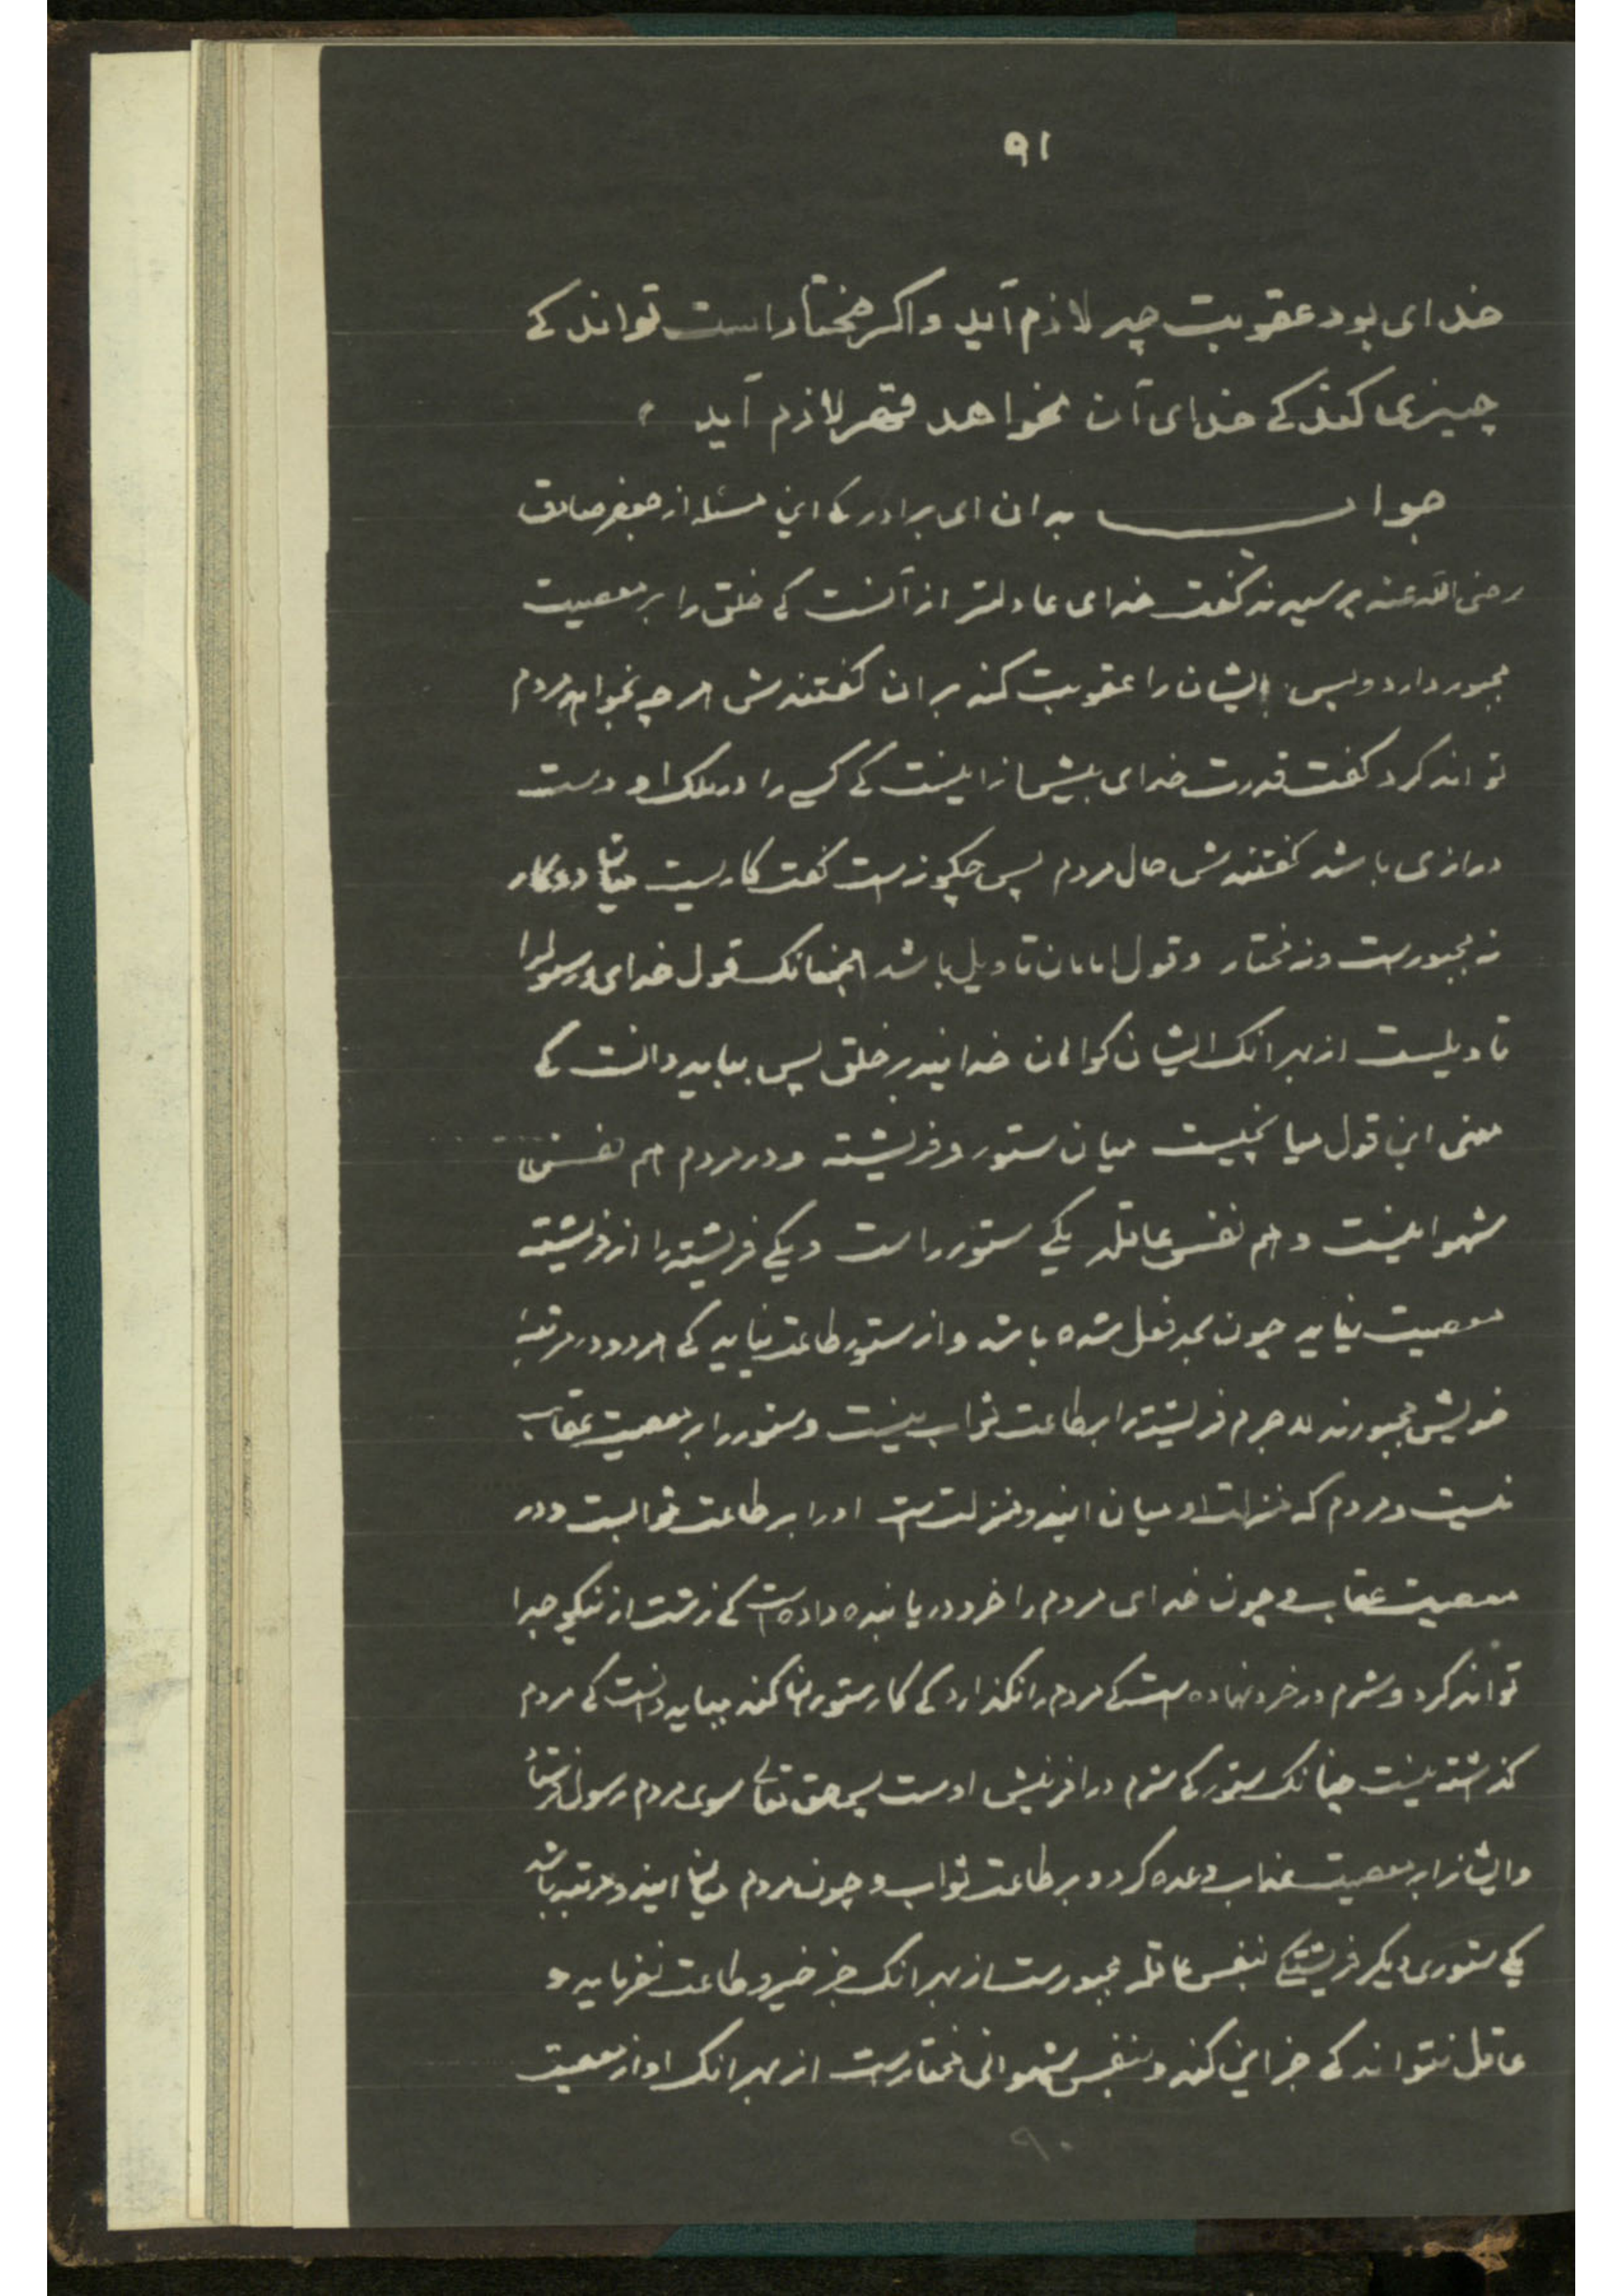 ۹۱
خدای بود عقوبت چه لازم آید واکر مختار است تواند کے
چیزی کند کے خدای آن نخواهد قهر لازم آید
جواب بدان ای برادر کے این مسئله از جعفر صادق
رضی الله عنه پرسیدند کفت خدای عادلتر از آنست کے خلق را بر معصیت
مجبور دارد و پس ایشان را عقوبت کند بر ان کفتندش هر چه بخواهد مردم
تواند کرد کفت قدرت خدای بیش از اینست کے کسے را در ملک او دست
درازی باشد کفتندش حال مردم پس چکونه است کفت کاریست میان دو کار
نه مجبورست ونه مختار وقول امامان تاویل باشد همچنانک قول خدای ورسولرا
تاویلست از بهر انک ایشان کواهان خدایند بر خلق پس بباید دانست کے
معنی این قول میانجیست میان ستور وفریشته ودر مردم هم نفس
شهوانیست وهم نفس عاقله یکے ستور راست ویکے فریشته را از فریشته
معصیت نیاید چون بحد فعل شده باشد واز ستور طاعت نیاید کے هر دو در مرتبهٔ
خویش مجبورند لا جرم فریشته را بر طاعت ثواب نیست وستور را بر معصیت عقاب
نیست ومردم که منزلت او میان این دو منزلت ست او را بر طاعت ثوابست ودر
معصیت عقاب و چون خدای مردم را خرد دریابنده داده است کے زشت از نیکو جدا
تواند کرد وشرم در خرد نهاده است کے مردم را نکذارد کے کار ستوران کند بباید دانست کے مردم
کذاشته نیست چنانک ستور کے شرم در افرینش اوست پس حق تعالے سوی مردم رسول فرستاد
وایشانرا بر معصیت عذاب وعده کرد وبر طاعت ثواب وچون مردم میان این دو مرتبه باشد
یکے ستوری دیکر فریشتکے بنفس عاقله مجبورست از بهر انک جز خیر وطاعت نفرماید و
عاقل نتواند کے جز این کند وبنفس شهوانی مختارست از بهر انک او از معصیت
۹۰